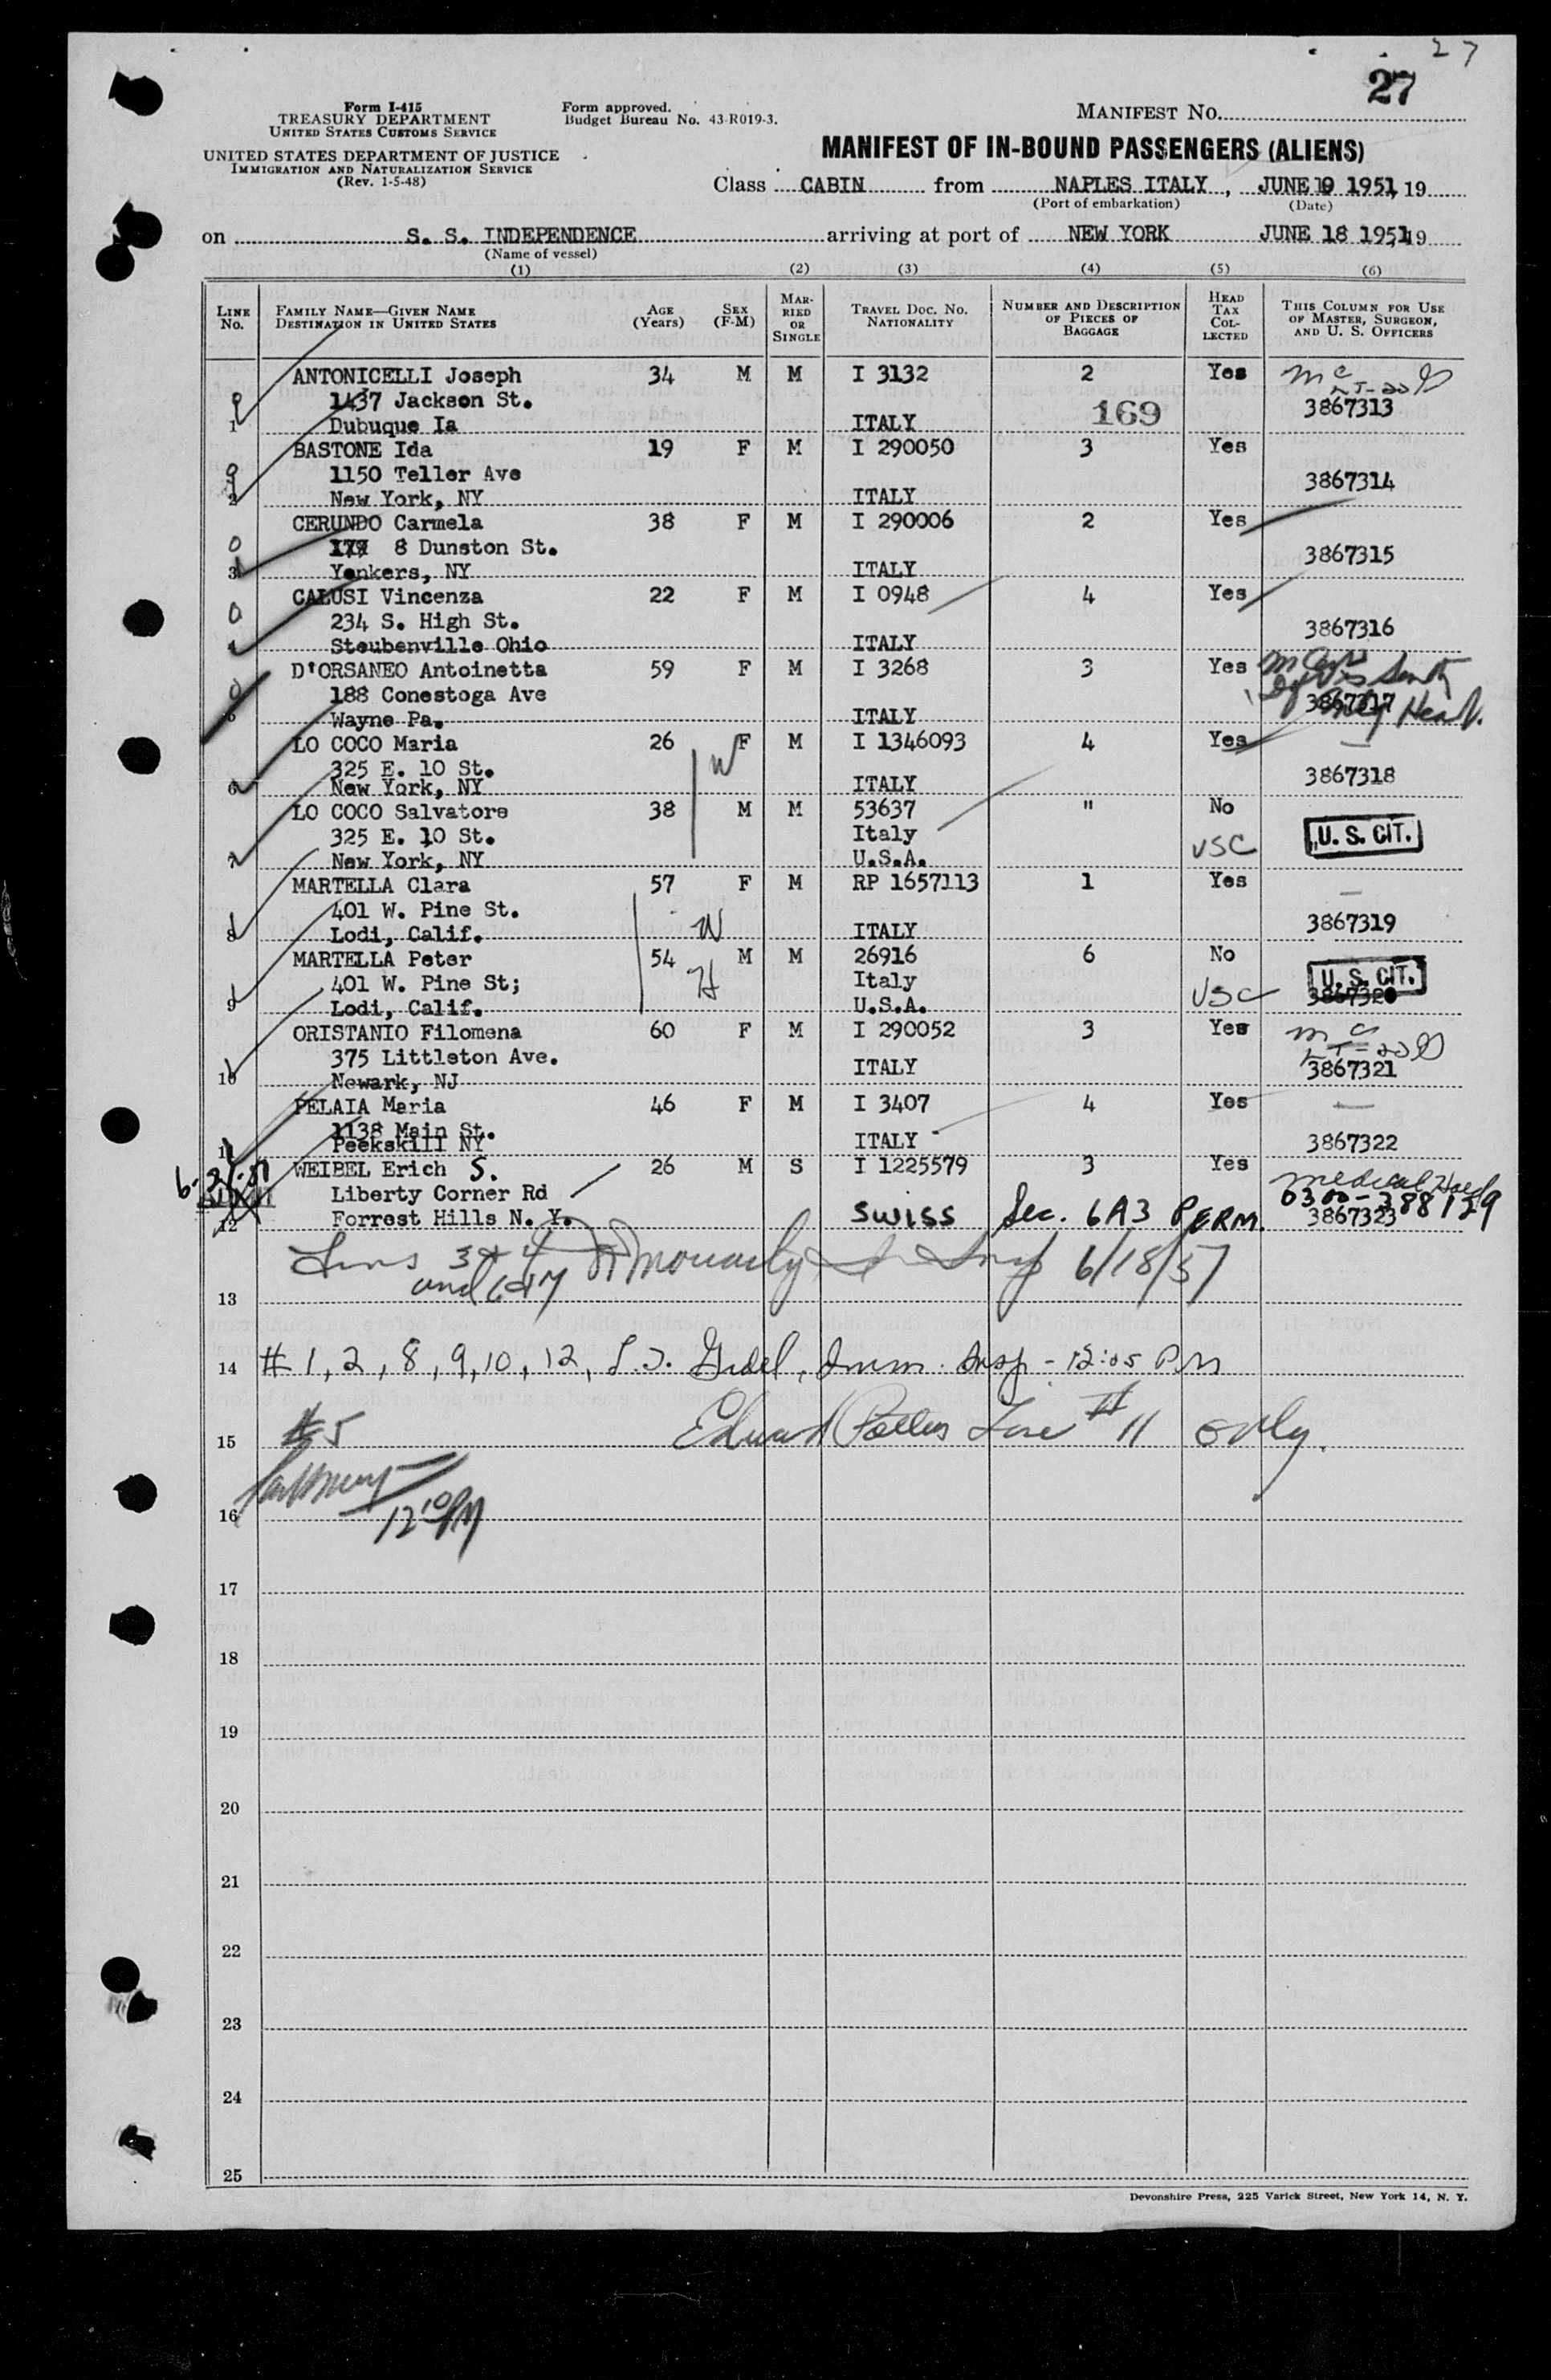 27
27
Form I-415
TREASURY DEPARTMENT
UNITED STATES CUSTOMS SERVICE
Form approved.
Budget Bureau No. 43-R019-3.
MANIFEST NO.
UNITED STATES DEPARTMENT OF JUSTICE
IMMIGRATION AND NATURALIZATION SERVICE
(Rev. 1-5-48)
MANIFEST OF IN-BOUND PASSENGERS (ALIENS)
Class CABIN from NAPLES ITALY, JUNE 1951, 19
(Port of embarkation) (Date)
on S. S. INDEPENDENCE arriving at port of NEW YORK JUNE 18 1951 19
(Name of vessel)
(1) (2) (3) (4) (5) (6)
LINE No. FAMILY NAME—GIVEN NAME DESTINATION IN UNITED STATES AGE (Years) SEX (F-M) MAR-RIED OR SINGLE TRAVEL DOC. NO. NATIONALITY NUMBER AND DESCRIPTION OF PIECES OF BAGGAGE HEAD TAX COL-LECTED THIS COLUMN FOR USE OF MASTER, SURGEON, AND U. S. OFFICERS
ANTONICELLI Joseph 34 M M I 3132 2 Yes
1437 Jackson St. 169 3867313
1 Dubuque Ia ITALY
BASTONE Ida 19 F M I 290050 3 Yes
1150 Teller Ave 3867314
2 New York, NY ITALY
CERUNDO Carmela 38 F M I 290006 2 Yes
8 Dunston St. 3867315
3 Yonkers, NY ITALY
CALUSI Vincenza 22 F M I 0948 4 Yes
234 S. High St. 3867316
4 Steubenville Ohio ITALY
D'ORSANEO Antoinetta 59 F M I 3268 3 Yes
188 Conestoga Ave 3867317
Wayne Pa. ITALY
LO COCO Maria 26 F M I 1346093 4 Yes
325 E. 10 St. W
6 New York, NY ITALY 3867318
LO COCO Salvatore 38 M M 53637 " No
325 E. 10 St. Italy USC U. S. CIT.
7 New York, NY U.S.A.
MARTELLA Clara 57 F M RP 1657113 1 Yes
401 W. Pine St. W 3867319
8 Lodi, Calif. ITALY
MARTELLA Peter 54 M M 26916 6 No
401 W. Pine St; H Italy USC U. S. CIT.
9 Lodi, Calif. U.S.A.
ORISTANIO Filomena 60 F M I 290052 3 Yes
375 Littleton Ave. ITALY 3867321
10 Newark, NJ
PELAIA Maria 46 F M I 3407 4 Yes
1138 Main St.
11 Peekskill NY ITALY 3867322
WEIBEL Erich S. 26 M S I 1225579 3 Yes
Liberty Corner Rd medical Hold
12 Forrest Hills N. Y. SWISS Sec. 6A3 PERM. 0300-388129
3867323
6/18/51
13
14 # 1, 2, 8, 9, 10, 12, Imm. Insp - 12:05 PM
15 #5 Edward Line # 11 only.
16 12 10 PM
17
18
19
20
21
22
23
24
25
Devonshire Press, 225 Varick Street, New York 14, N. Y.